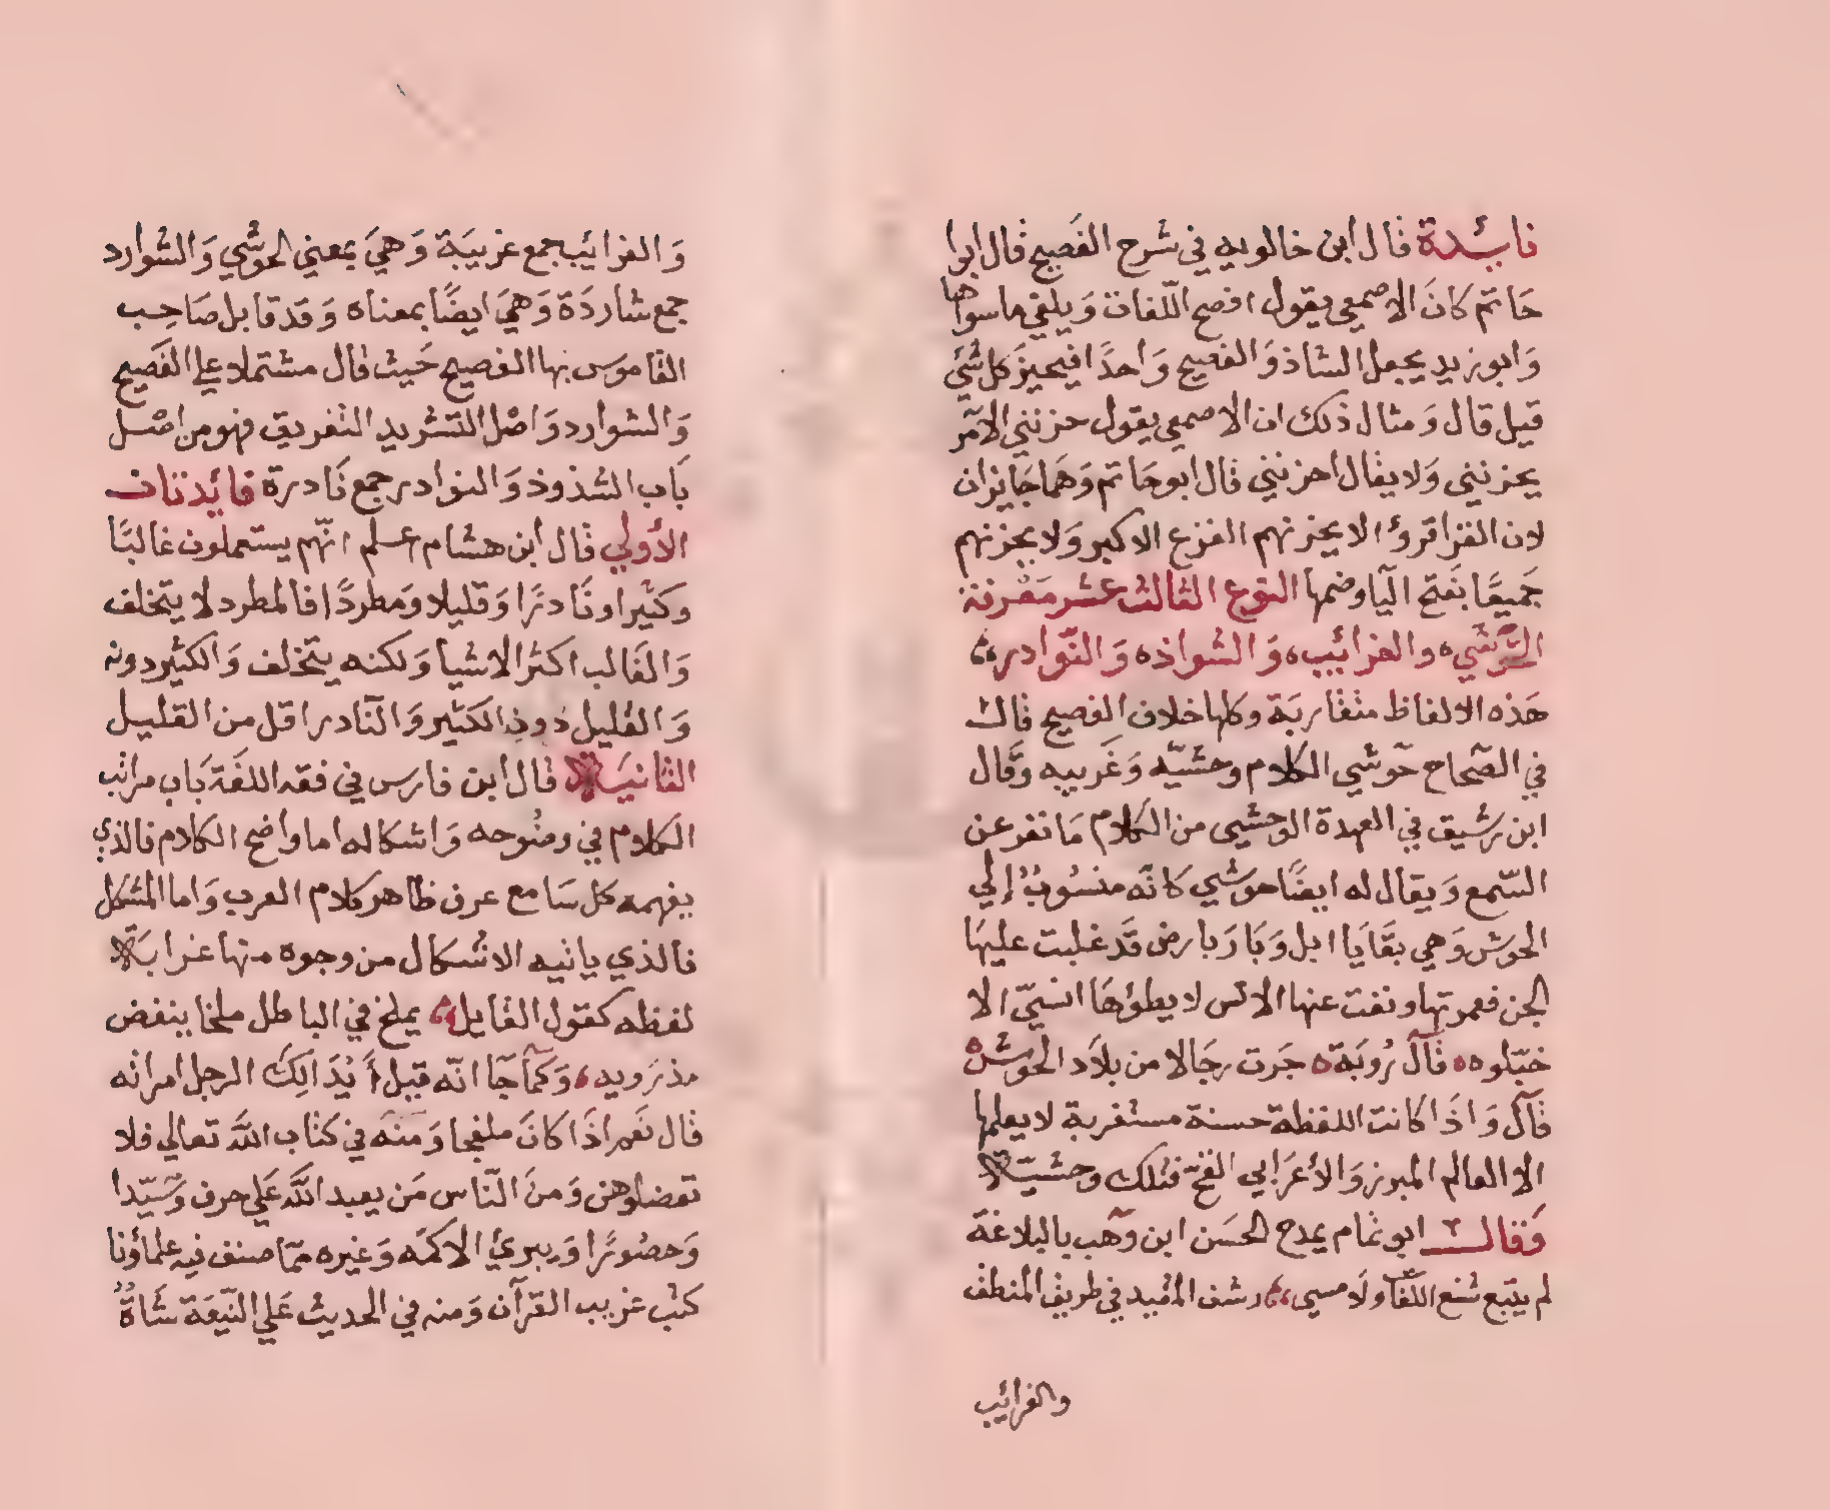 فائدة قال ابن خالويه في شرح الفصيح قال ابوا
حَاتم كانَ الاصمعي يقول افصح اللّغات وَيلغي ماسواها
وَابوزيد يجعل الشاذ وَالفصيح وَاحدًا فيجيز كل شَي
قيل قال وَمثال ذلك ان الاصمعي يقول حزنني الامر
يحزنني وَلا يقال احزنني قال ابوحَاتم وَهمَا جَايزان
لان القرا قرؤا لا يحزنهم الفزع الاكبر وَلا يحزنهم
جَميعًا بفتح اليَا وضمها النوع الثالث عشر مَعْرفة
الحوشي والغرائب وَالشواذ وَالنّوادر
هَذه الالفاظ متقاربَة وكلها خلاف الفصيح قال
في الصّحاح حوشي الكلام وحشيّه وَغَريبه وَقال
ابن رشيق في العمدة الوحشي من الكلام مَا نفر عن
السّمع وَيقال له ايضًا حوشي كانّه منسُوبٌ إلي
الحوش وَهي بقَايَا ابل وَبَار بارض قَد غلبت عليهَا
الجن فعمرتها ونفت عنها الانس لا يطؤهَا انسيّ الا
خبّلوه قال رُوبَة جَرت رجَالا من بلاَد الحوش
قال وَاذَا كانت اللفظة حسنة مستغربة لا يعلمها
الا العالم المبرز وَالأعرَابي القحّ فتلك وحشيّة
وَقال ابو تمام يمدح الحسَن ابن وَهب بالبلاغة
لم يتبع شنع اللّغا ولَا مسي رسف المقيد في طريق المنطق
والغرائب
وَالغرائب جمع غريبَة وَهيَ بمعني الحوشي وَالشوارد
جمع شاردَة وَهيَ ايضًا بمعناه وَقد قابل صَاحِب
القاموس بها الفصيح حَيث قال مشتملا علي الفَصيح
وَالشوارد وَاصْل التشريد التفريق فهو من اصْل
بَاب الشذوذ وَالنوادر جمع نَادرة فائدتان
الأولي قال ابن هشام اعلم انّهم يستعملون غالبًا
وكثيرا ونَادرًا وَقليلا وَمطردًا فالمطرد لا يتخلف
وَالغَالب اكثر الاشيا وَلكنه يتخلف وَالكثير دونه
وَالقليل دون الكثير وَالنّادر اقل من القليل
الثانيَة قال ابن فارس في فقه اللغَة بَاب مراتب
الكلام في وضُوحه وَاشكاله اما واضح الكلام فالذي
يفهمه كل سَامع عرف ظاهر كلام العرب وَاما المشكل
فالذي ياتيه الاشكال من وجوه منها غرابَة
لفظه كقول القايل يملخ في الباطل ملخا ينفض
مذرَويه وَكمَا جَا انّه قيل أَيُدَالِكَ الرجل امراته
قال نعَم اذَا كانَ ملفجا وَمنه في كتاب اللَّه تعالي فلا
تعضلوهن وَمنَ النّاس مَن يعبد اللَّه عَلي حرف وَسَيّدا
وَحصُورًا وَيبرئ الاكمَه وَغيره ممّا صنف فيه علماؤنا
كتب غريب القرآن وَمنه في الحديث عَلي التّيعَة شَاةٌ